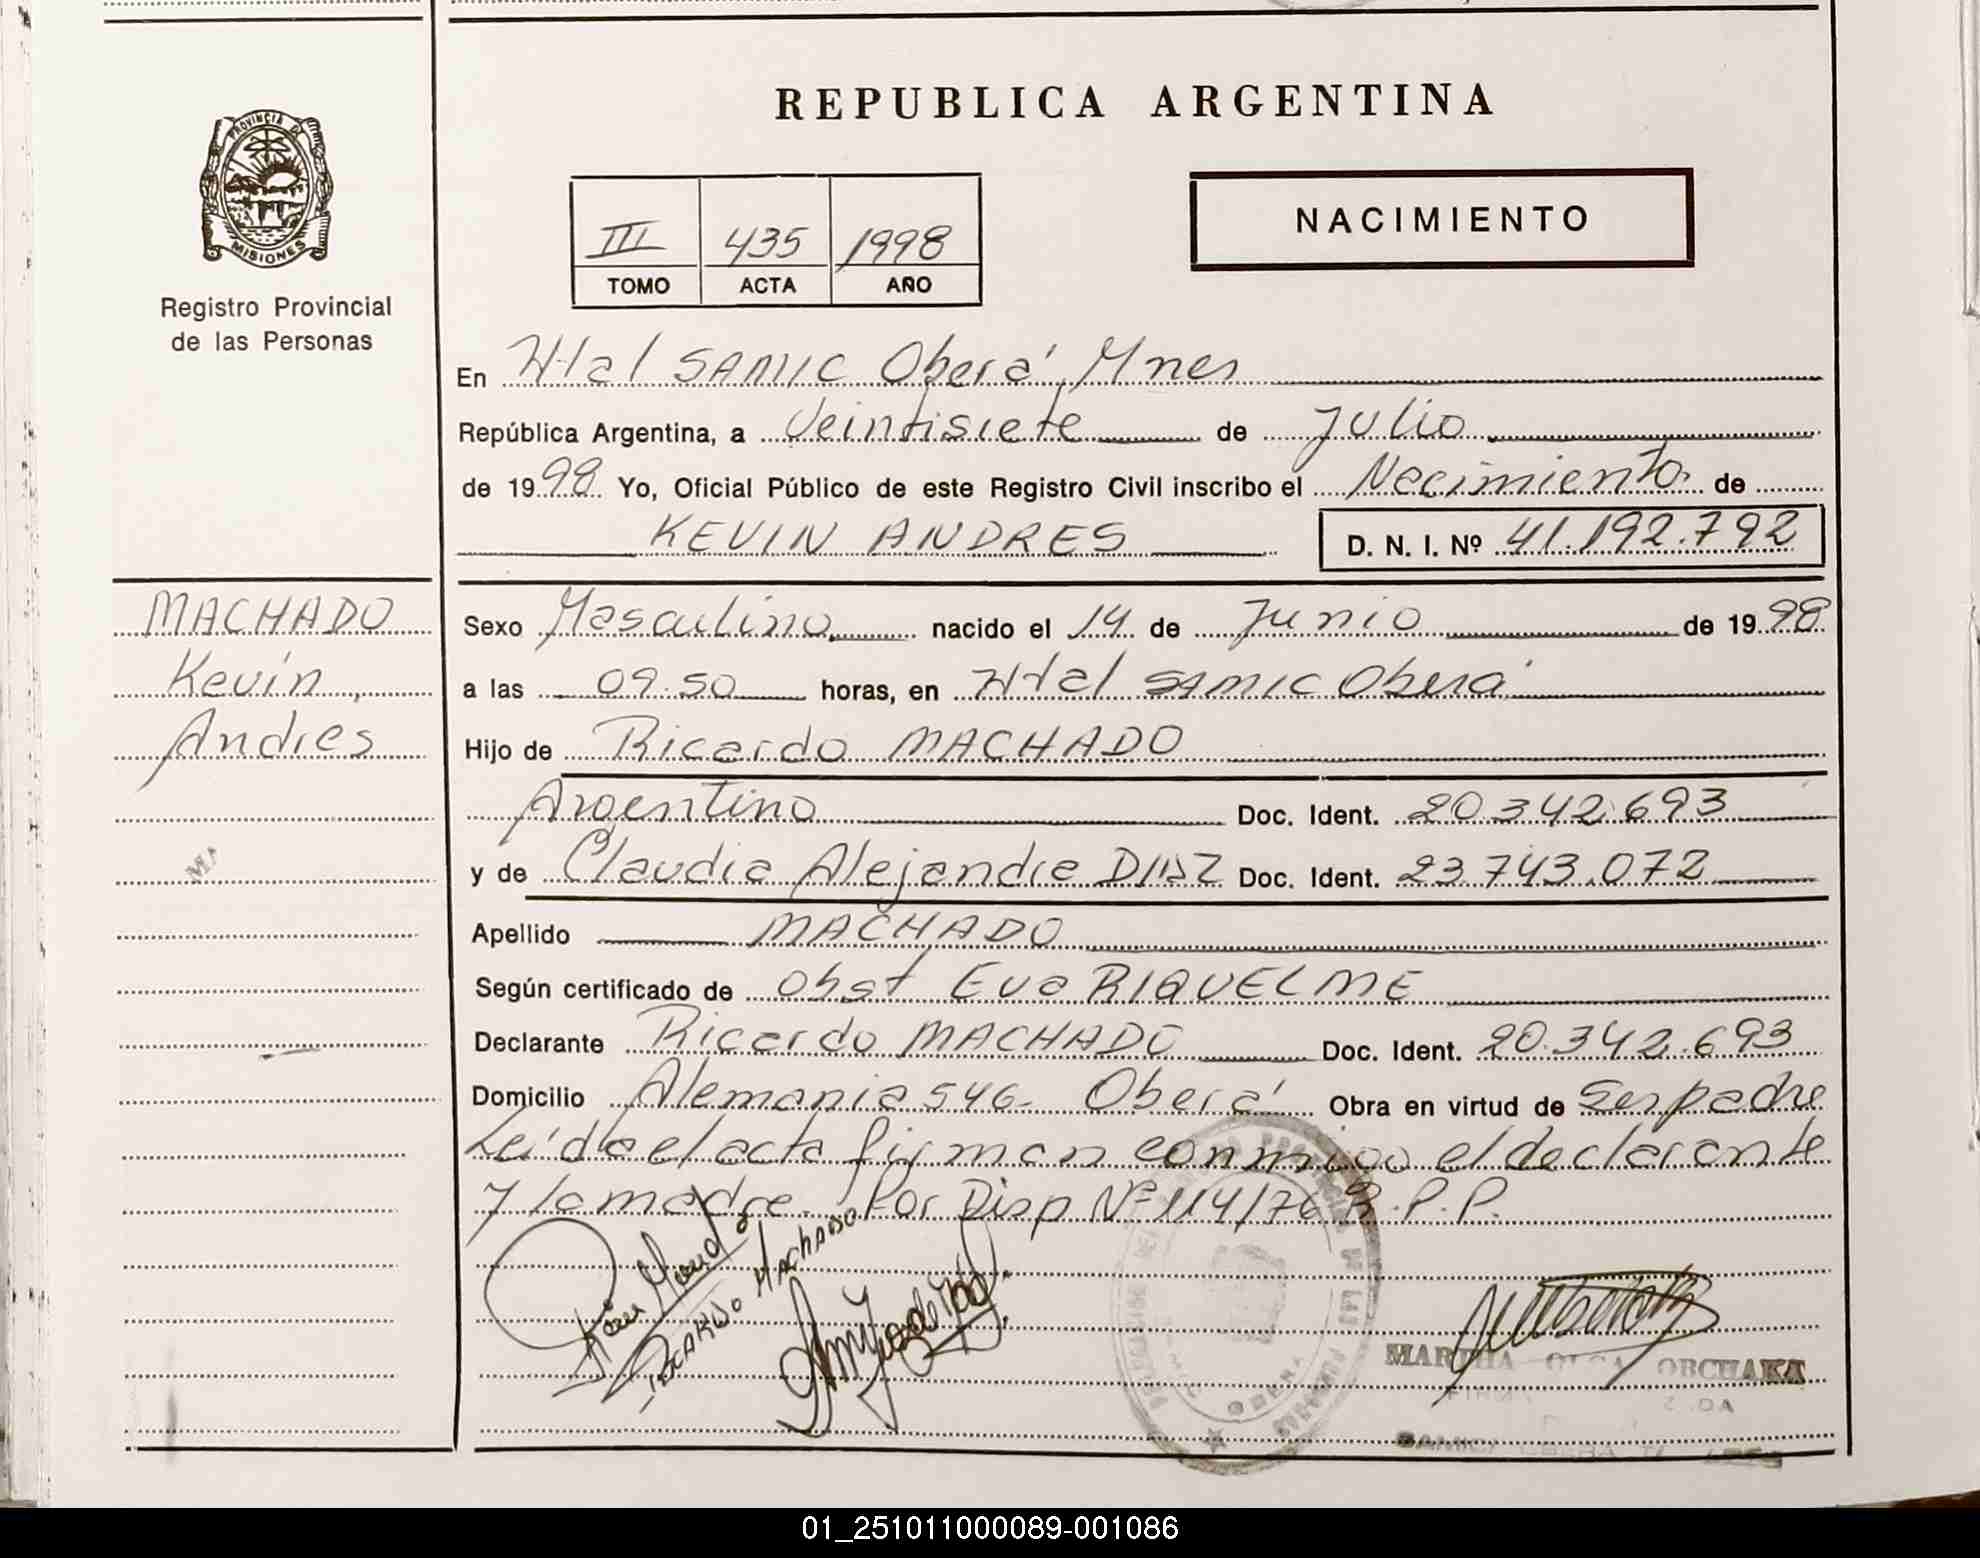 REPUBLICA ARGENTINA
PROVINCIA DE
MISIONES
Registro Provincial
de las Personas
III 435 1998
TOMO ACTA AÑO
NACIMIENTO
En Htal SAMIC Oberá, Mnes
República Argentina, a Veintisiete de Julio
de 1998 Yo, Oficial Público de este Registro Civil inscribo el Nacimiento de
KEVIN ANDRES D. N. I. Nº 41.192.792
MACHADO
Kevin,
Andres
Sexo Masculino nacido el 14 de Junio de 1998
a las 09.50 horas, en Htal SAMIC Oberá
Hijo de Ricardo MACHADO
Argentino Doc. Ident. 20.342.693
y de Claudia Alejandra DIAZ Doc. Ident. 23.743.072
Apellido MACHADO
Según certificado de Obst Eva RIQUELME
Declarante Ricardo MACHADO Doc. Ident. 20.342.693
Domicilio Alemania 546- Oberá Obra en virtud de Ser padre
Leída el acta firman conmigo el declarante
y la madre. Por Disp Nº 114/76 R.P.P.
MACHADO
MARTHA OLGA OBCHAKA
01_251011000089-001086